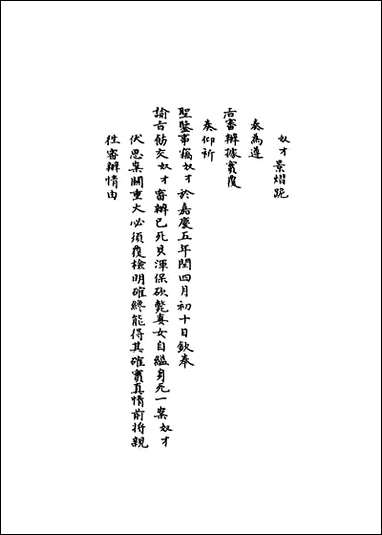 奴才景熠跪
奏為遵
旨審辦據實覆
奏仰祈
聖鑒事竊奴才於嘉慶五年閏四月初十日欽奉
諭旨飭交奴才審辦已死貝渾保砍斃妻女自縊身死一案奴才
伏思案關重大必須覆檢明確終能得其確實真情前將親
往審辦情由